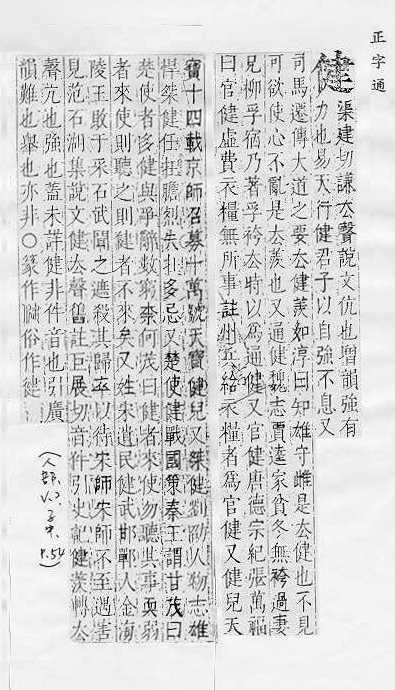 正字通
健 渠建切謙去聲說文伉也增韻強有
力也易天行健君子以自強不息又
司馬遷傳大道之要去健羨如淳曰知雄守雌是去健也不見
可欲使心不亂是去羨也又通健魏志賈逵家貧冬無袴過妻
兄柳孚宿乃著孚袴去時以爲通健又官健唐德宗紀張萬福
曰官健虛費衣糧無所事註州兵給衣糧者爲官健又健兒天
寶十四載京師召募十萬號天寶健兒又桀健劉劭人物志雄
悍桀健任在膽烈失在多忌又楚使健戰國策秦王謂甘茂曰
楚使者多健與爭辭數窮柰何茂曰健者來使勿聽其事耎弱
者來使則聽之則健者不來矣又姓宋遺民健武邯鄲人金海
陵王敗于采石武聞之遮殺其歸卒以待宋師宋師不至遇害
見范石湖集說文健去聲舊註巨展切音件引史記健羨轉去
聲亢也強也蓋未詳健非件音也引廣
韻難也舉也亦非○篆作 俗作
(人部